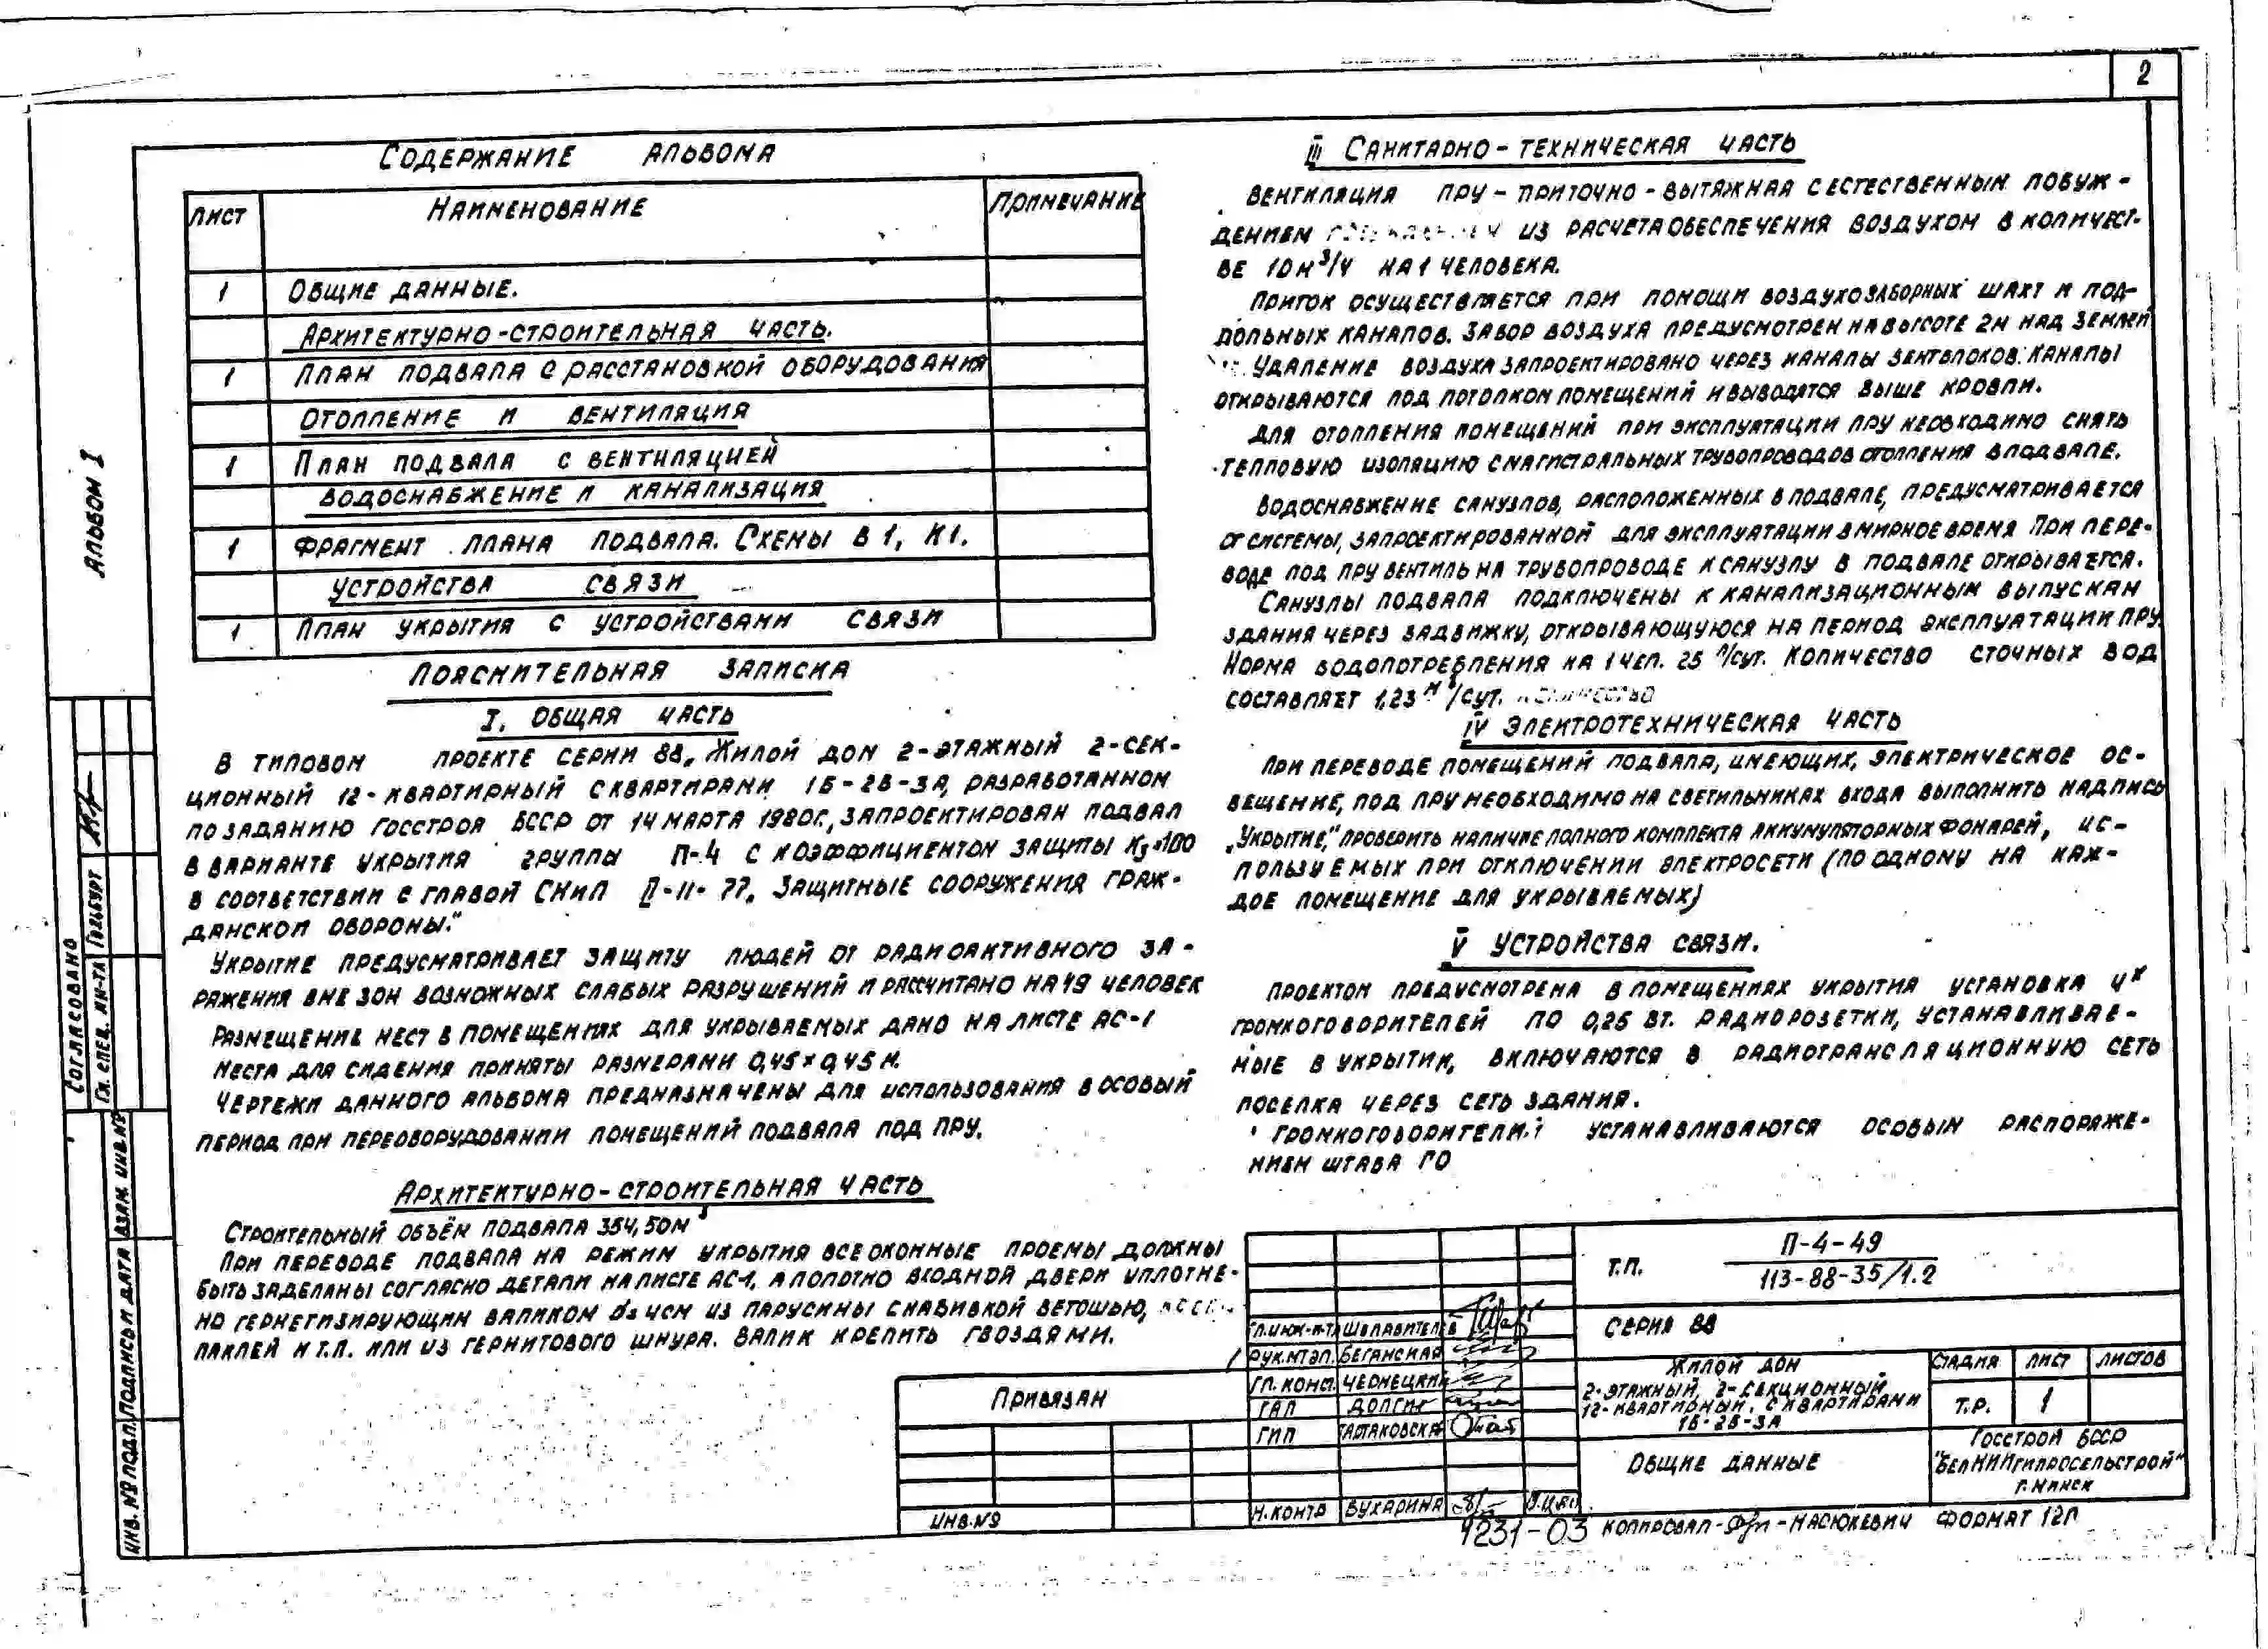 2
Альбом I
Содержание альбома
Лист Наименование Примечание
1 Общие данные.
Архитектурно-строительная часть.
1 План подвала с расстановкой оборудования
Отопление и вентиляция
1 План подвала с вентиляцией
Водоснабжение и канализация
1 Фрагмент плана подвала. Схемы В1, К1.
Устройства связи
1 План укрытия с устройствами связи
Пояснительная записка
I. Общая часть
В типовом проекте серии 88 „Жилой дом 2-этажный 2-сек-
ционный 12-квартирный с квартирами 1Б-2Б-3А, разработанном
по заданию Госстроя БССР от 14 марта 1980г., запроектирован подвал
в варианте укрытия группы П-4 с коэффициентом защиты Кз=100
в соответствии с главой СНиП II-11-77 „Защитные сооружения граж-
данской обороны."
Укрытие предусматривает защиту людей от радиоактивного за-
ражения вне зон возможных слабых разрушений и рассчитано на 49 человек
Размещение мест в помещениях для укрываемых дано на листе АС-1
Места для сидения приняты размерами 0,45×0,45 м.
Чертежи данного альбома предназначены для использования в особый
период при переоборудовании помещений подвала под ПРУ.
Архитектурно-строительная часть
Строительный объём подвала 354,50м³
При переводе подвала на режим укрытия все оконные проемы должны
быть заделаны согласно детали на листе АС-1, а полотно входной двери уплотне-
но герметизирующим валиком d=4см из парусины с набивкой ветошью,
паклей и т.п. или из гернитового шнура. Валик крепить гвоздями.
III Санитарно-техническая часть
Вентиляция ПРУ - приточно-вытяжная с естественным побуж-
дением из расчета обеспечения воздухом в количест-
ве 10м³/ч на 1 человека.
Приток осуществляется при помощи воздухозаборных шахт и под-
польных каналов. Забор воздуха предусмотрен на высоте 2м над землей
Удаление воздуха запроектировано через каналы вентблоков. Каналы
открываются под потолком помещений и выводятся выше кровли.
Для отопления помещений при эксплуатации ПРУ необходимо снять
тепловую изоляцию с магистральных трубопроводов отопления в подвале.
Водоснабжение санузлов, расположенных в подвале, предусматривается
от системы, запроектированной для эксплуатации в мирное время При пере-
воде под ПРУ вентиль на трубопроводе к санузлу в подвале открывается.
Санузлы подвала подключены к канализационным выпускам
здания через задвижку, открывающуюся на период эксплуатации ПРУ.
Норма водопотребления на 1 чел. 25 л/сут. Количество сточных вод
составляет 1,23 м³/сут.
IV Электротехническая часть
При переводе помещений подвала, имеющих, электрическое ос-
вещение, под ПРУ необходимо на светильниках входа выполнить надпись
„Укрытие," проверить наличие полного комплекта аккумуляторных фонарей, ис-
пользуемых при отключении электросети (по одному на каж-
дое помещение для укрываемых)
V Устройства связи.
Проектом предусмотрена в помещениях укрытия установка 4х
громкоговорителей по 0,25 вт. Радиорозетки, устанавливае-
мые в укрытии, включаются в радиотрансляционную сеть
поселка через сеть здания.
Громкоговорители устанавливаются особым распоряже-
нием штаба ГО
Согласовано
Гл. спец. ин-та Гецбурт
Инв. № подл. Подпись и дата Взам. инв.№
Привязан
Инв.№
Гл.инж.и-та Шепавителев
Рук.мт эл. Беганская
Гл. конст. Чернецкий
ГАП Долгих
ГИП Тартаковская
Н.контр Бухарина
Т.П. П-4-49
113-88-35/1.2
Серия 88
Жилой дом
2-этажный, 2-секционный
12-квартирный, с квартирами
1Б-2Б-3А
Стадия Лист Листов
Т.Р. 1
Общие данные
Госстрой БССР
"БелНИИгипросельстрой"
г. Минск
4231-03 Копировал- -Масюкевич Формат 12Г